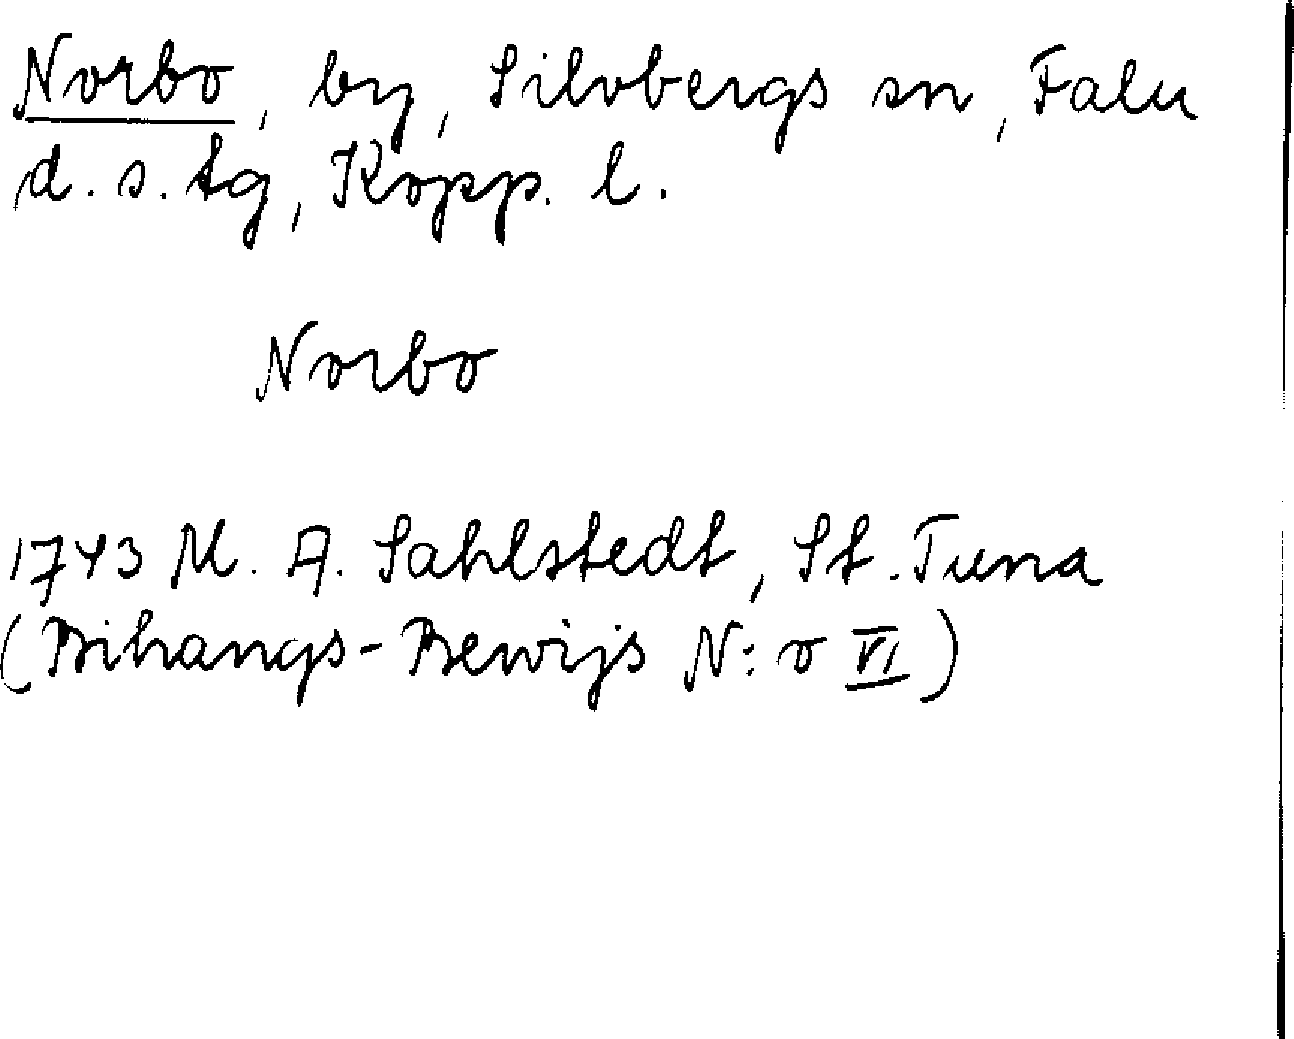 Norbo, by, Silvbergs sn, Falu
d. s. tg, Kopp. l.
Norbo
1743 M. A. Sahlstedt, St. Tuna
(Bihangs-Bewijs N:o VI)